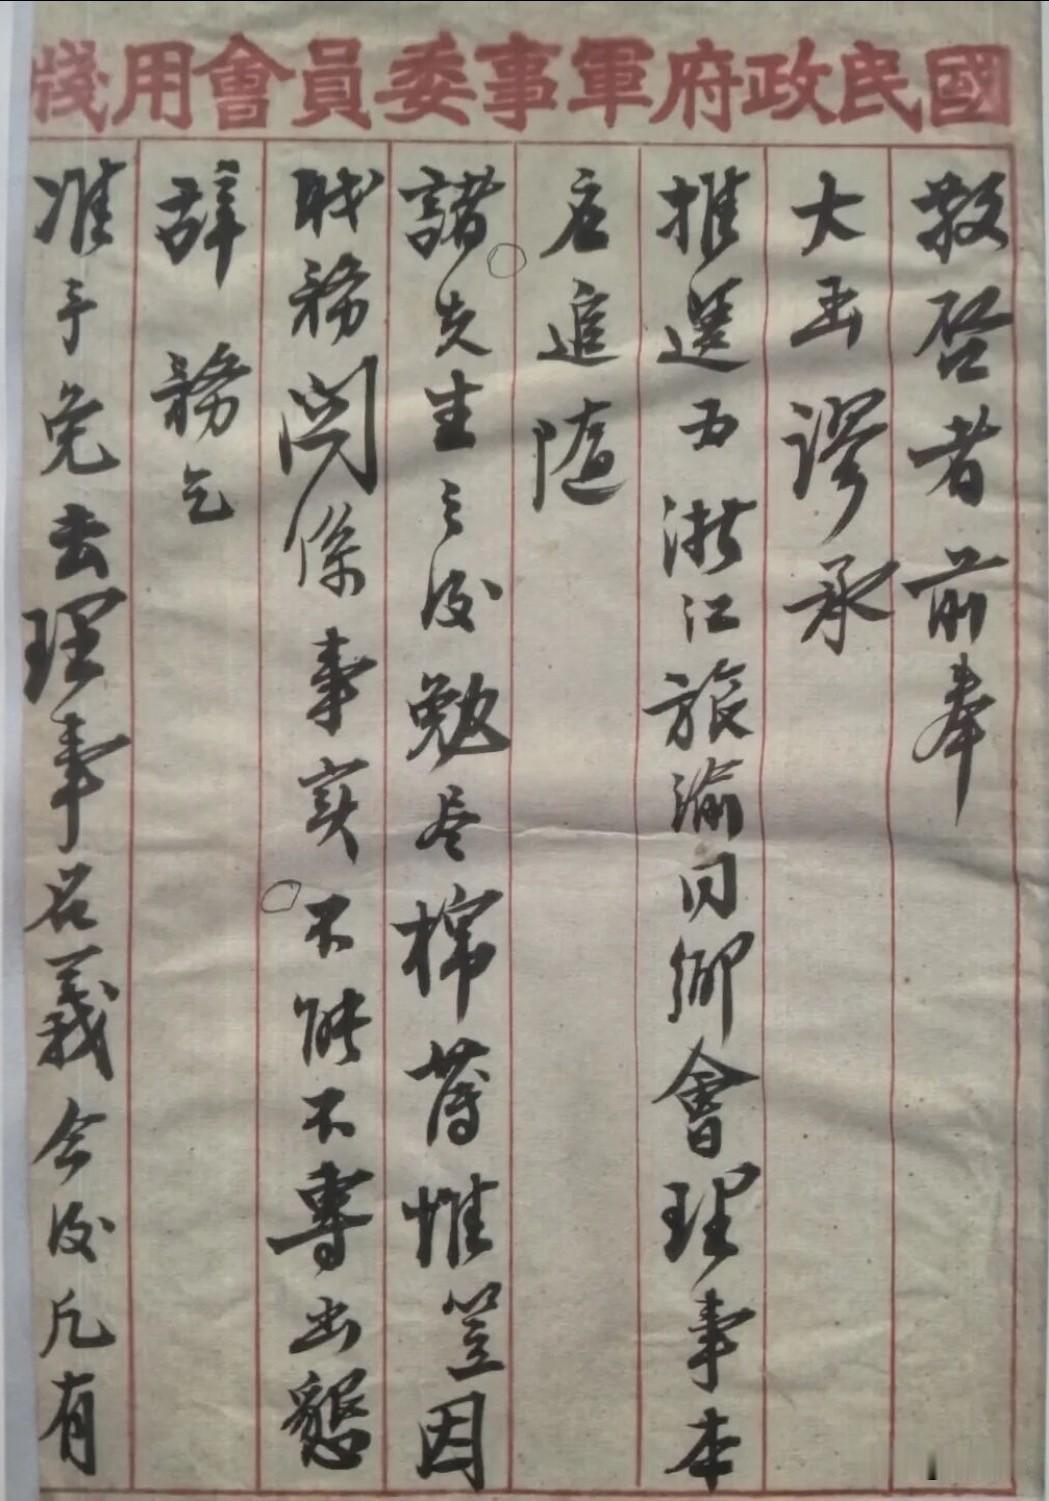 國民政府軍事委員會用牋
敬启者前奉
大函謬承
推選为浙江旅渝同鄉會理事本
应追隨
諸先生之後勉尽棉薄惟笠因
职務関係事实不能不專函懇
辞務乞
准予免去理事名義今後凡有